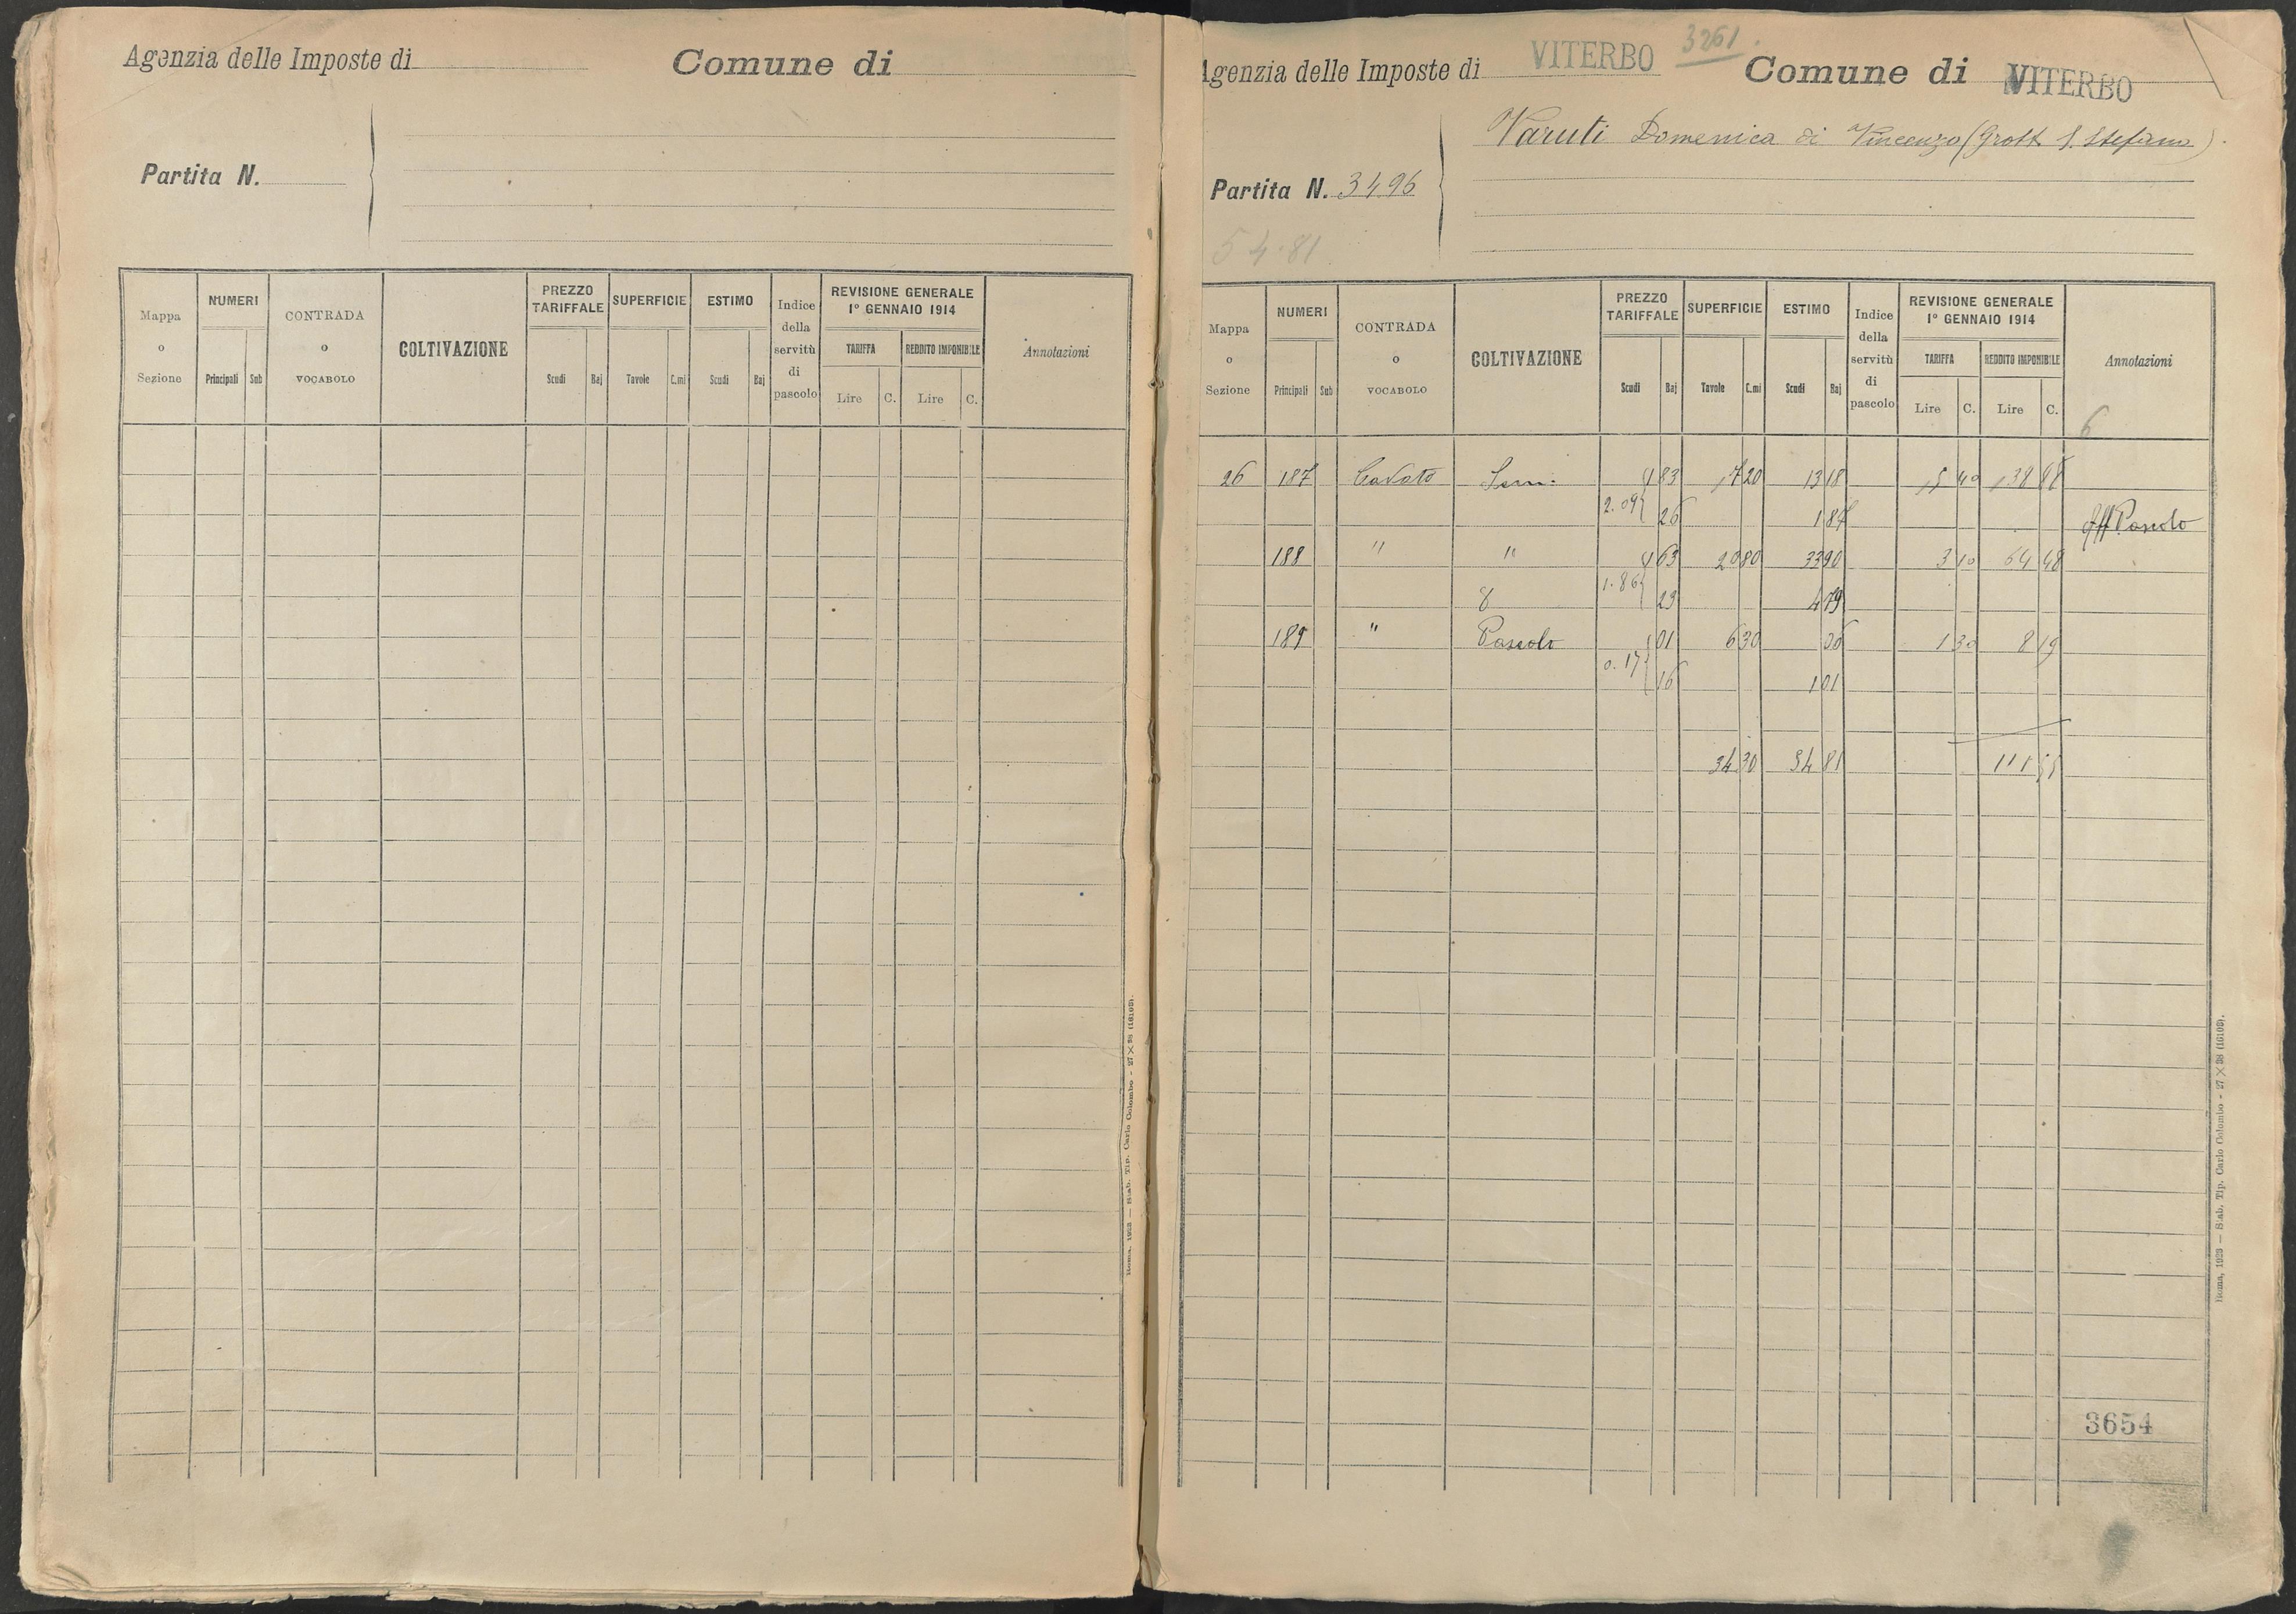 Agenzia delle Imposte di
Comune di
Partita N.
Mappa o Sezione
NUMERI
Principali Sub
CONTRADA o VOCABOLO
COLTIVAZIONE
PREZZO TARIFFALE
Scudi Baj
SUPERFICIE
Tavole C.mi
ESTIMO
Scudi Baj
Indice della servitù di pascolo
REVISIONE GENERALE
1º GENNAIO 1914
TARIFFA REDDITO IMPONIBILE
Lire C. Lire C.
Annotazioni
Roma, 1923 — Stab. Tip. Carlo Colombo - 27 × 38 (16109).
Agenzia delle Imposte di VITERBO 3261.
Comune di VITERBO
Varuti Domenica di Vincenzo (Grott. S. Stefano).
Partita N. 3496
54.81
Mappa o Sezione
NUMERI
Principali Sub
CONTRADA o VOCABOLO
COLTIVAZIONE
PREZZO TARIFFALE
Scudi Baj
SUPERFICIE
Tavole C.mi
ESTIMO
Scudi Baj
Indice della servitù di pascolo
REVISIONE GENERALE
1º GENNAIO 1914
TARIFFA REDDITO IMPONIBILE
Lire C. Lire C.
Annotazioni
6
26 187 Cavato Sem. 1 83 7 20 13 18 5 40 38 88
2.09 26 1 87 Aff. Pascolo
188 " " 1 63 20 80 33 90 3 10 64 48
1.86 23 4 79
189 " Pascolo 01 6 30 06 1 30 8 19
0.17 16 1 01
34 30 54 81 111 55
3654
Roma, 1923 — Stab. Tip. Carlo Colombo - 27 × 38 (16109).